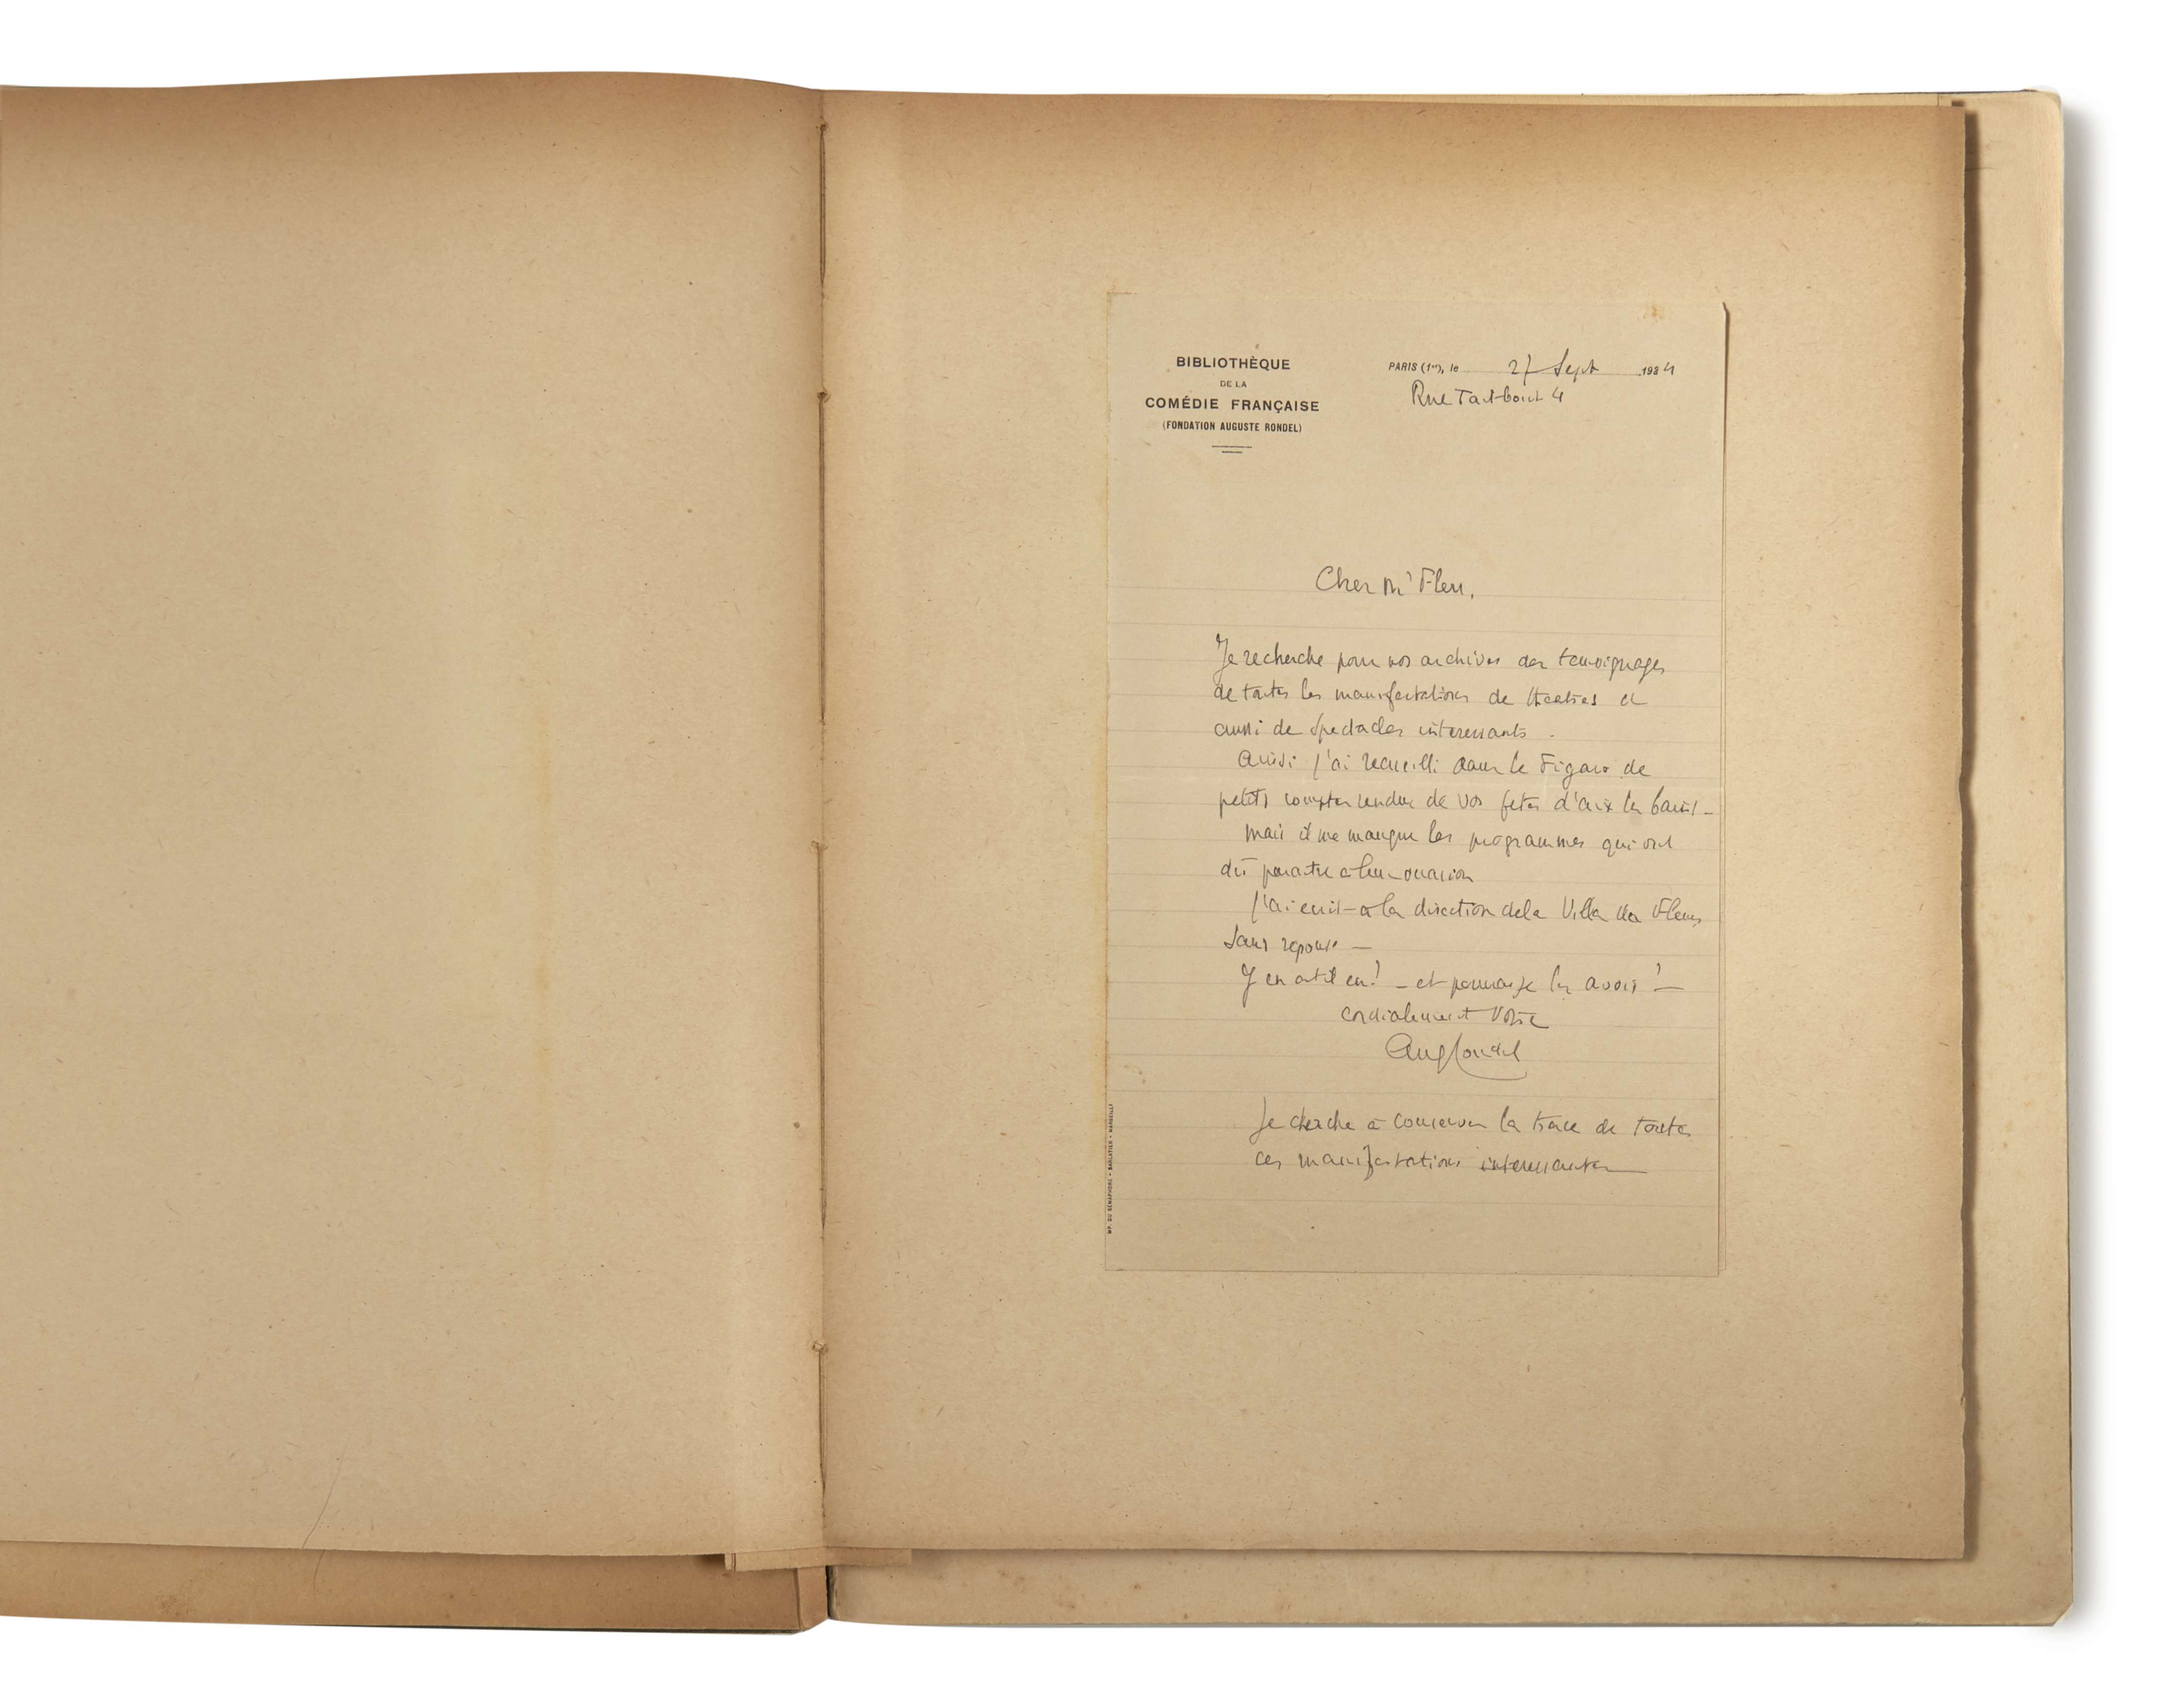 BIBLIOTHÈQUE
DE LA
COMÉDIE FRANÇAISE
(FONDATION AUGUSTE RONDEL)
PARIS (1er), le 27 Sept 1934
Rue Taitbout 4
Cher Mr
Je recherche pour nos archives des temoignages
de toutes les manifestations de theatres et
aussi de spectacles interessants.
Ainsi j'ai recueilli dans le Figaro de
petits comptes rendus de vos fetes d'aix les bains -
mais il me manque les programmes qui ont
dû paraitre a leur occasion
J'ai ecrit a la direction de la Villa des Fleurs
sans reponse —
Y en a t il eu? - et pourrais je les avoir? —
cordialement Votre
Aug Rondel
Je cherche à conserver la trace de toutes
ces manifestations interessantes
IMP. DU SÉMAPHORE - BARLATIER - MARSEILLE